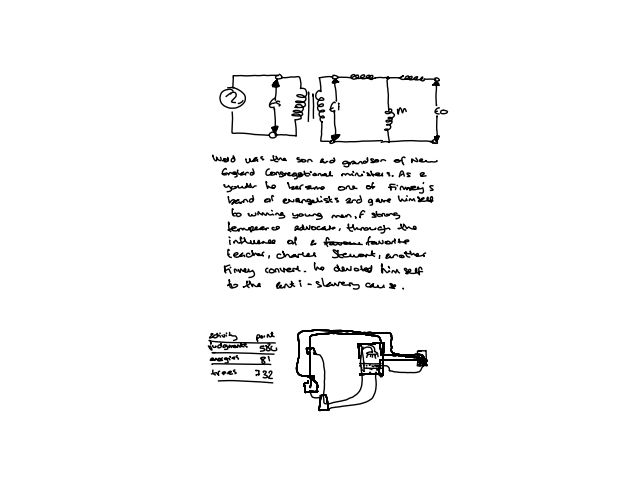 Ei M Eo
Weld was the son and grandson of New
England Congregational ministers. As a
youth he became one of Finney's
band of evangelists and gave himself
to winning young men, f strong
temperance advocates, through the
influence of a favorite
teacher, charles Stewart, another
Finney convert. he devoted him self
to the anti-slavery cause.
activity point
judgments
energies 81
trees 732